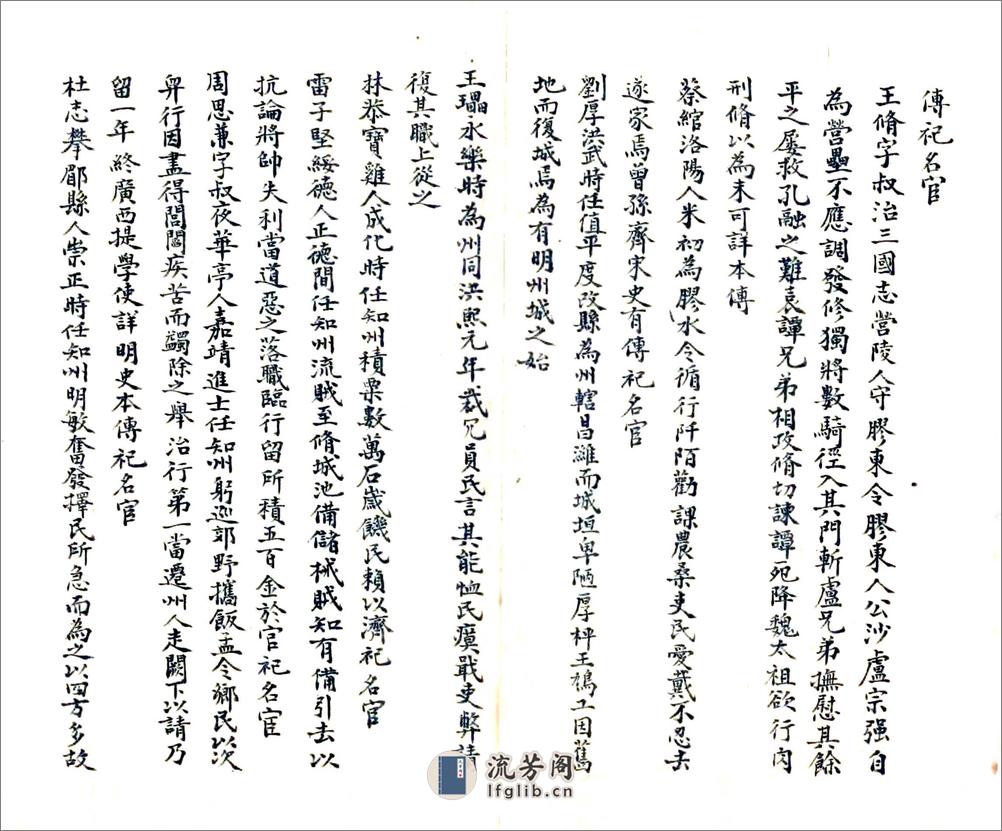 傳祀名官
王脩字叔治三國志營陵人守膠東令膠東人公沙盧宗强自
為營壘不應調發修獨將數騎徑入其門斬盧兄弟撫慰其餘
平之屡救孔融之難袁譚兄弟相攻脩切諫譚死降魏太祖欲行肉
刑脩以為未可詳本傳
蔡綰洛陽人米初為膠水令循行阡陌勸課農桑吏民愛戴不忍去
遂家焉曾孫齊宋史有傳祀名官
劉厚洪武時任值平度改縣為州轄昌濰而城垣卑陋厚枰王鳩工因舊
地而復城焉為有明州城之始
王瑥永樂時為州同洪熙元年裁冗員民言其能恤民瘼戢吏弊請
復其職上從之
林恭寶雞人成化時任知州積粟數萬石歲饑民賴以濟祀名官
雷子堅綏德人正德間任知州流賊至脩城池備儲械賊知有備引去以
抗論將帥失利當道惡之落職臨行留所積五百金於官祀名宦
周思兼字叔夜華亭人嘉靖進士任知州躬巡郊野攜飯盂令鄉民以次
舁行因盡得閭閻疾苦而蠲除之舉治行第一當遷州人走闕下以請乃
留一年終廣西提學使詳明史本傳祀名官
杜志攀郿縣人崇正時任知州明敏奮發擇民所急而為之以四方多故
流芳阁
lfglib.cn